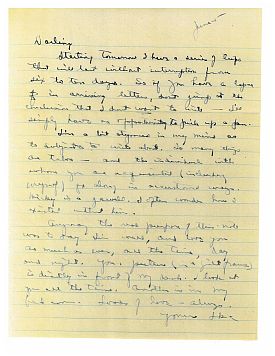 June
Darling
Starting tomorrow I have a series of trips
that will last without interruption from
six to ten days. So if you have a lapse
in arriving letters, don't jump at the
conclusion that I don't want to write - I'll
simply have no opportunity to pick up a pen.
I'm a bit in my mind as
to subjects to write about. So many things
are taboo - and the individuals with
whom you are acquainted (including
myself) go along in accustomed ways.
Mickey is a jewel. I often wonder how I
existed without him.
Anyway, the real purpose of this note
was to say I'm well, and love you
as much as ever, all the time, day
and night. Your picture
is directly in front of my desk. I look at
you all the time. Another is in my
bed room. Loads of love - always.
Your Ike